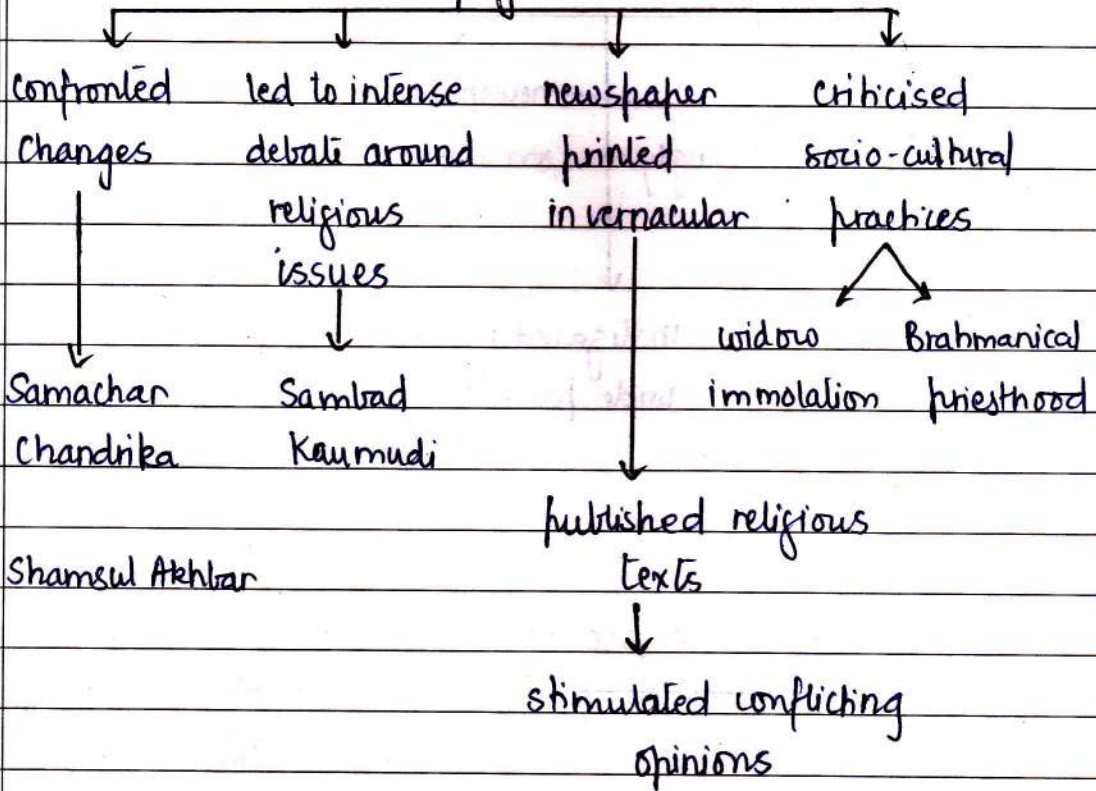 confronted
changes
led to intense
debate around
religious
issues
newspaper
printed
in vernacular
criticised
socio-cultural
practices
widow
immolation
Brahmanical
priesthood
Samachar
Chandrika
Sambad
Kaumudi
published religious
texts
Shamsul Akhbar
stimulated conflicting
opinions